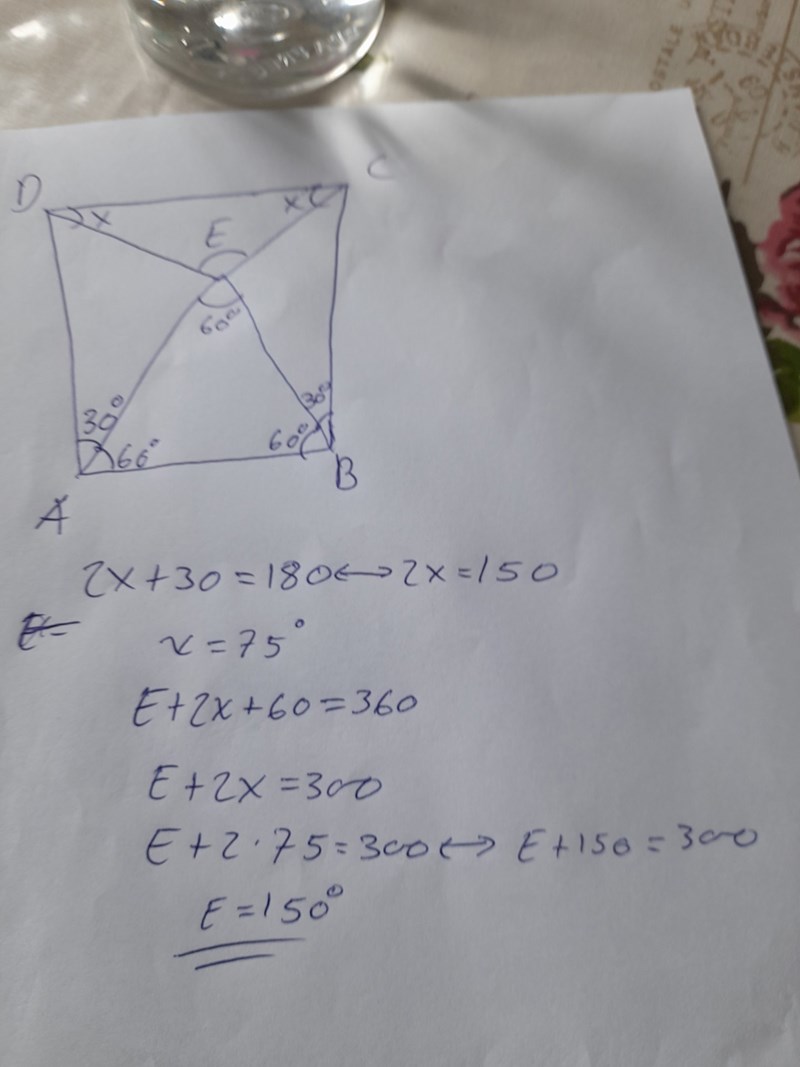 D
C
x
x
E
60°
30°
30°
60°
60°
B
A
2x+30=180↔2x=150
x=75°
E+2x+60=360
E+2x=300
E+2·75=300↔E+150=300
E=150°